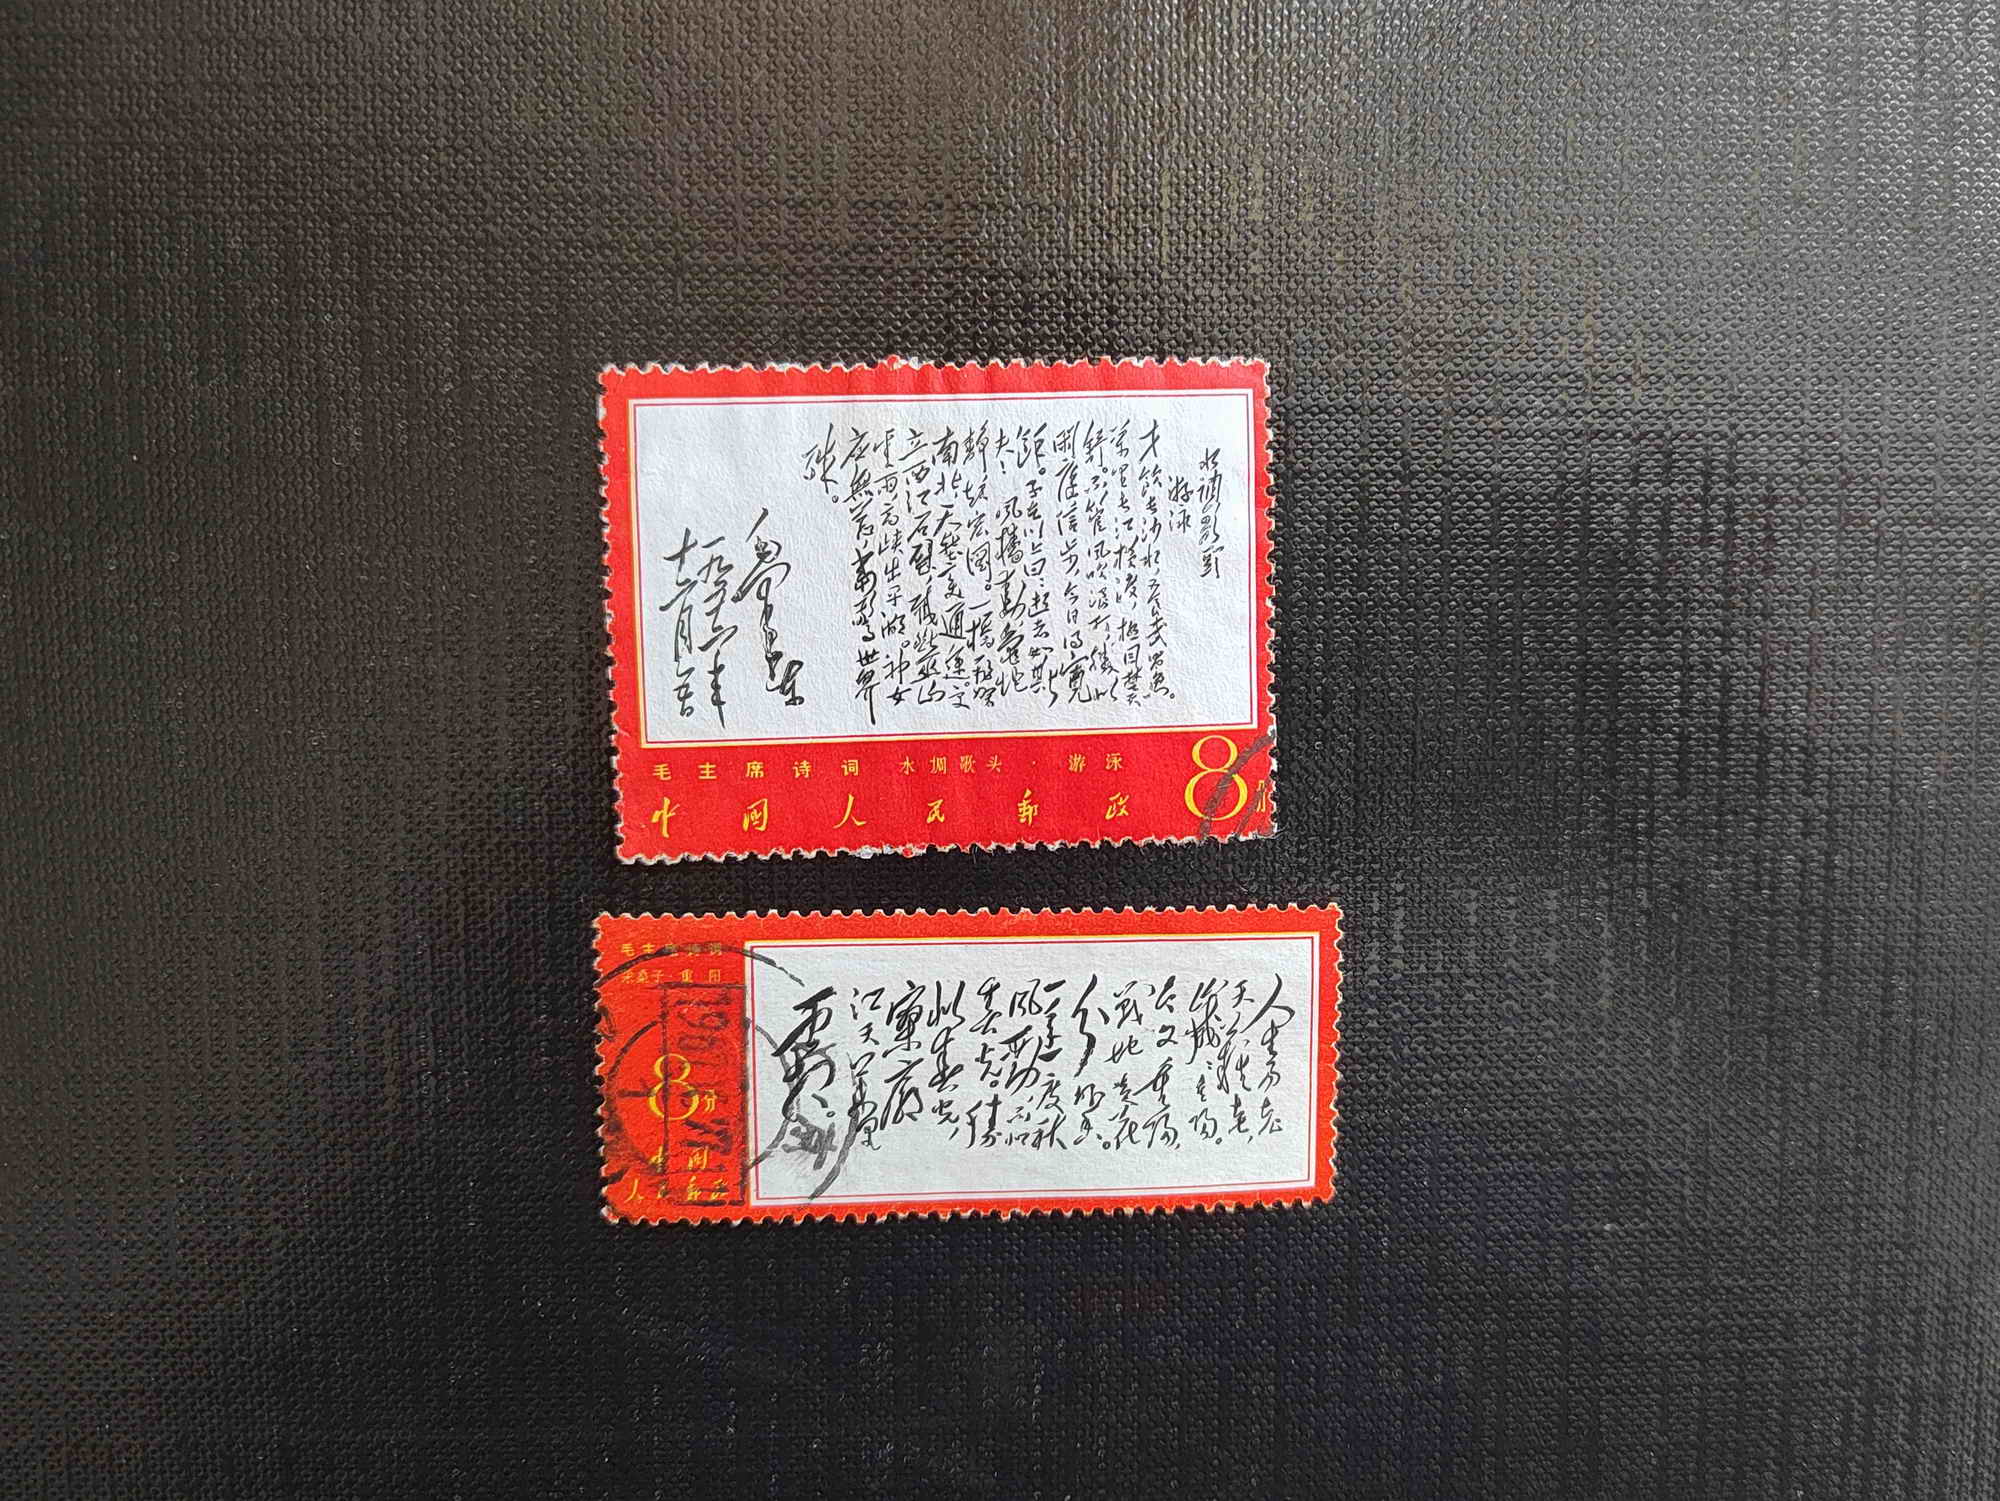 水调歌头
游泳
才饮长沙水,又食武昌鱼。
万里长江横渡,极目楚天
舒。不管风吹浪打,胜似
闲庭信步,今日得宽
馀。子在川上曰:逝者如斯
夫!风樯动,龟蛇
静,起宏图。一桥飞架
南北,天堑变通途。更
立西江石壁,截断巫山
云雨,高峡出平湖。神女
应無恙,当惊世界
殊。
毛泽东
一九五六年
十二月五日
毛主席诗词 水调歌头·游泳
中国人民邮政
8分
毛主席诗词
采桑子·重阳
8分
中国
人民邮政
人生易老
天难老,
岁岁重阳。
今又重阳,
战地黄花
分外香。
一年一度秋
风劲,不似
春光。胜
似春光,
寥廓
江天万里
霜。